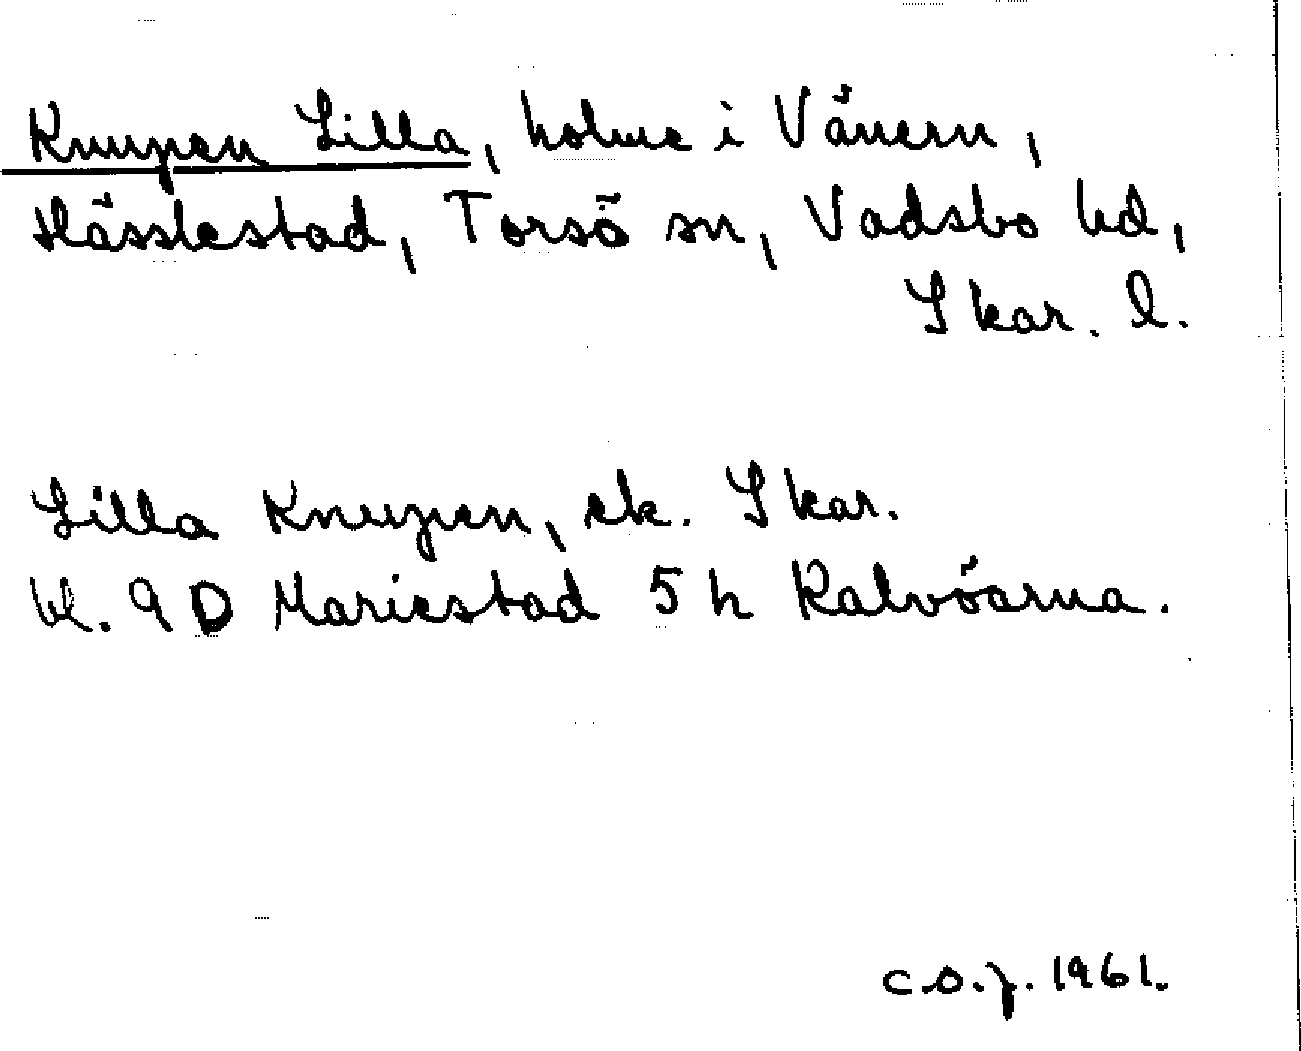 Knuypen Lilla, holme i Vänern,
Hässlestad, Torsö sn, Vadsbo hd,
Skar. l.
Lilla Knuypen, ek. Skar.
bl. 9 D Mariestad 5 h Kalvöarna.
C.O.J. 1961.